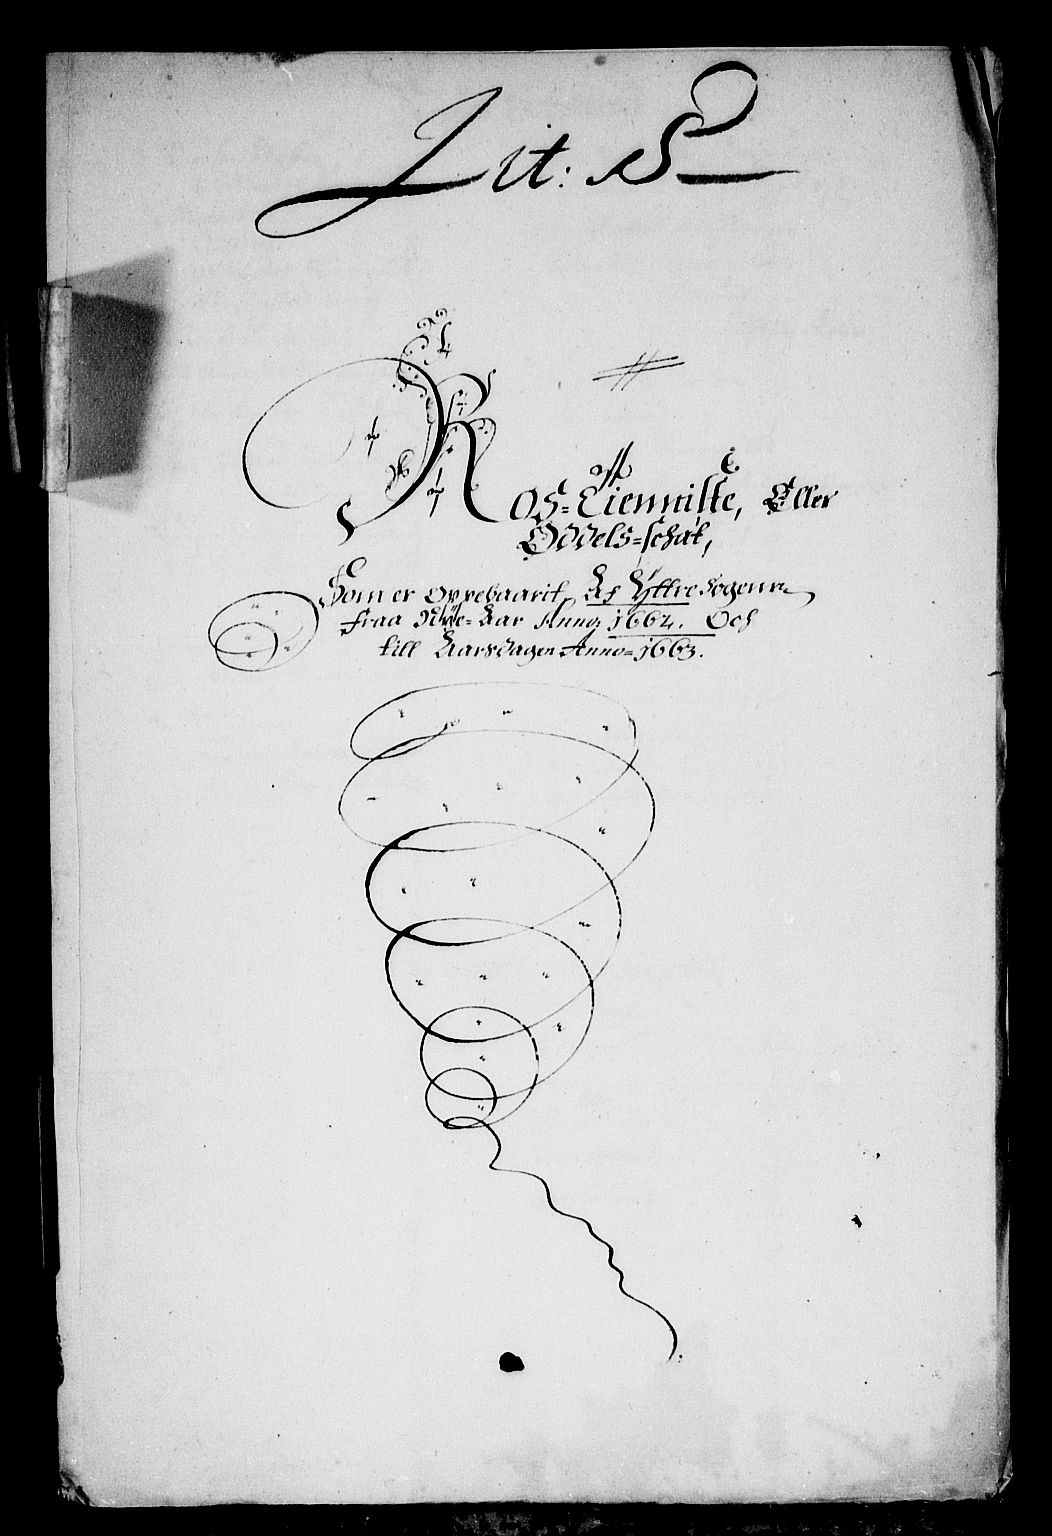 Lit: S
Ros=Tienniste, Eller
Oddels=schat,
Som er Oppebaarit, Af Yttre Sogenn
fraa Nÿe=Aar Anno 1662. Och
till Aarsdagen Anno=1663.